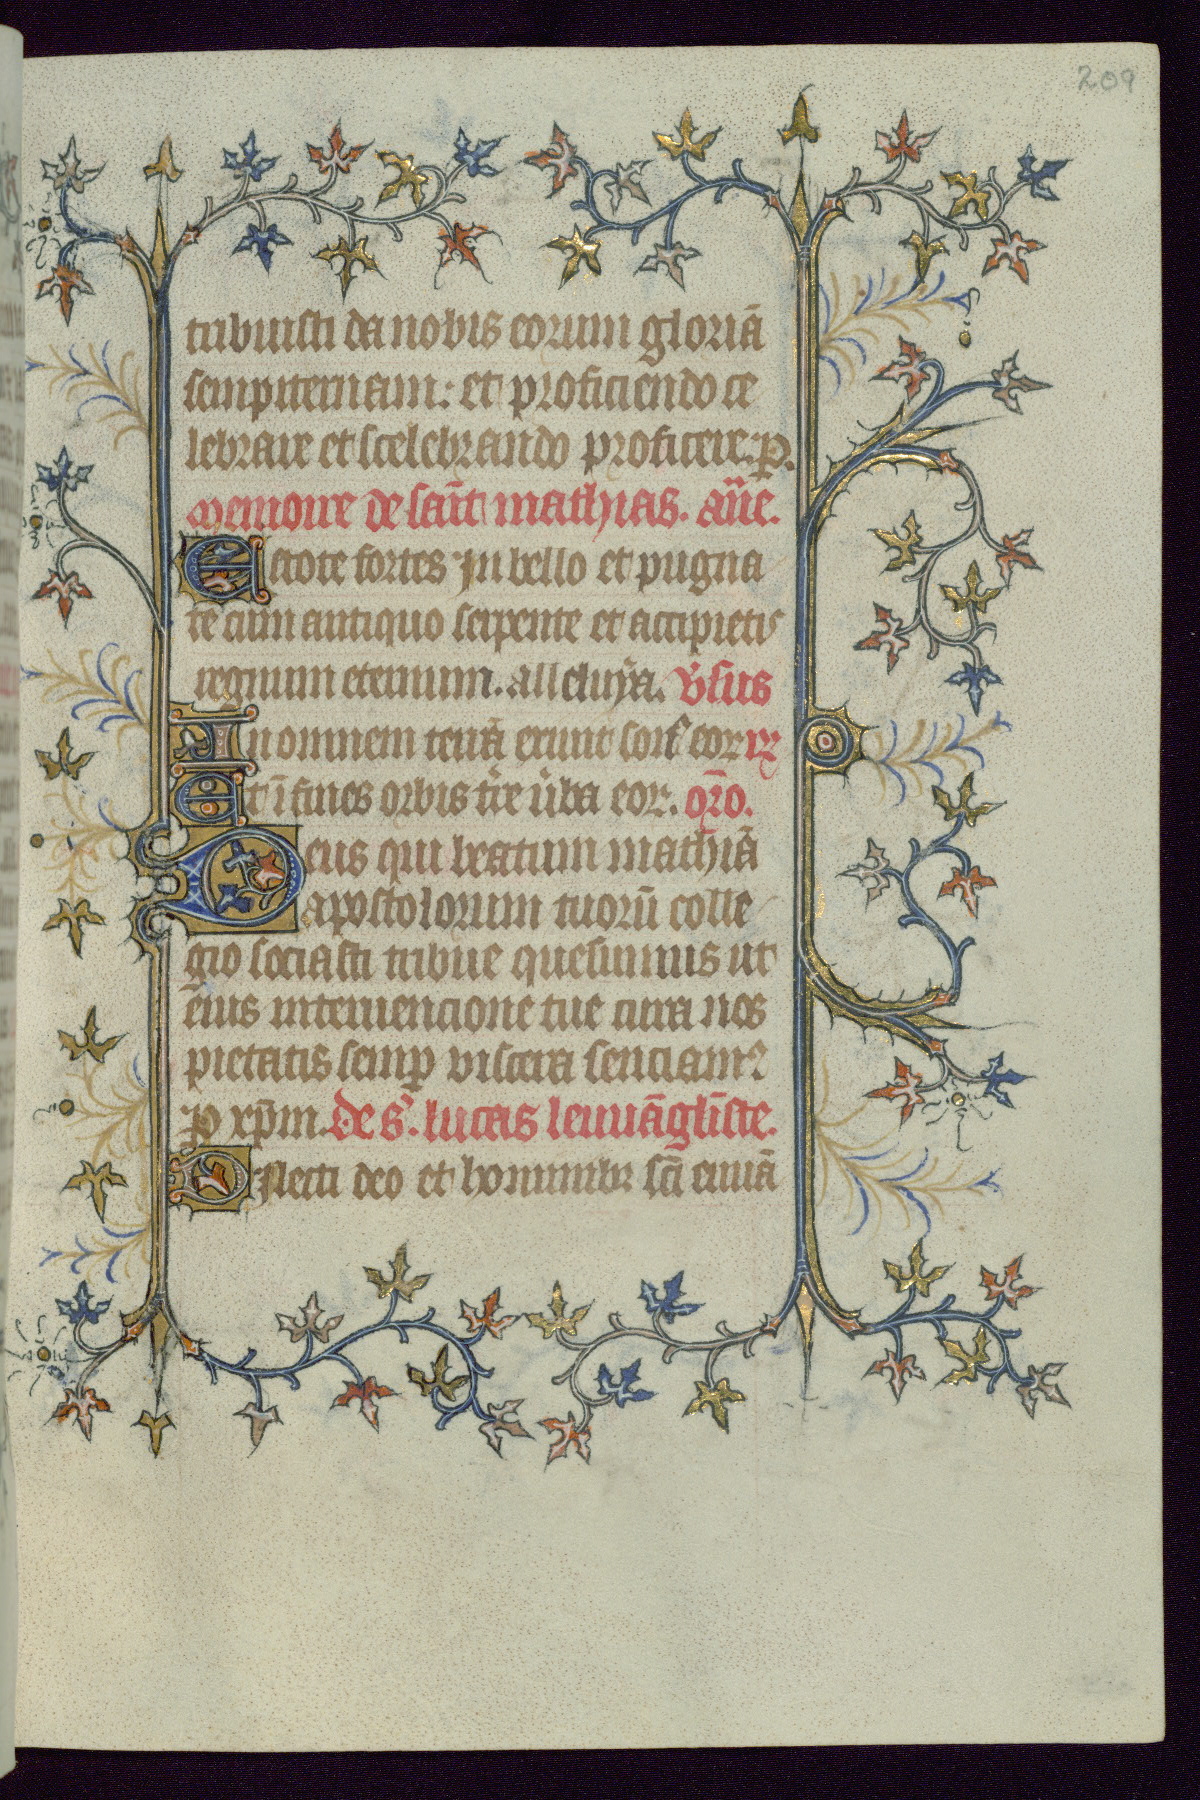 209
tribuisti da nobis eorum gloriā
sempiternam: et proficiendo ce
lebrare et scelebrando proficere. ꝑ.
Memoire de saīt mathias. añe.
Estote fortes In bello et pugna
te cum antiquo serpente et accipietis
regnum eternum. alleluya. v̄sus
In omnem terrā exiuit son᷒ eor ꝶ
Et ī fines orbis tr̄e ūba eor. or̄o.
Deus qui beatum mathiā
apostolorum tuorū colle
gio sociasti tribue quesumus ut
eius interuencione tue circa nos
pietatis semꝑ viscera senciam᷒
ꝑ xp̄m. De s᷒. lucas leuuāgliste.
Dilecti deo et hominib᷒ sc̄i euuā